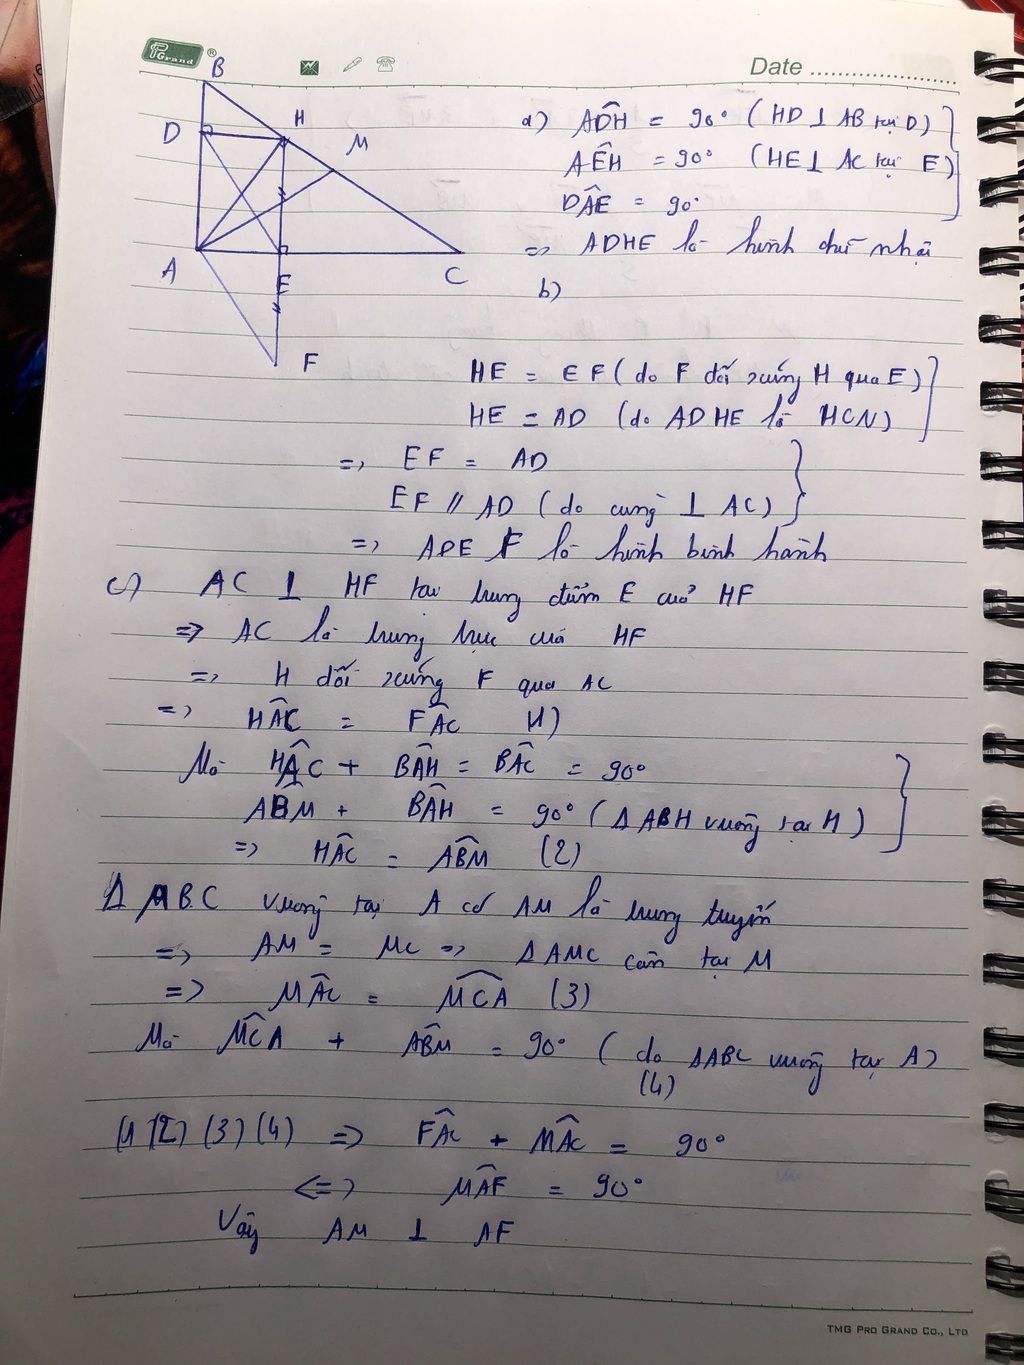 PGrand®
Date ........................
B
D
H
M
A
E
C
F
a) ADH̑ = 90° ( HD ⊥ AB tại D)
AÊH = 90° (HE ⊥ AC tại E)
DÂE = 90°
=> ADHE là hình chữ nhật
b)
HE = EF ( do F đối xứng H qua E)
HE = AD (do ADHE là HCN)
=> EF = AD
EF // AD ( do cùng ⊥ AC)
=> ADEF là hình bình hành
c) AC ⊥ HF tại trung điểm E của HF
=> AC là trung trực của HF
=> H đối xứng F qua AC
=> HÂC = FÂC (1)
Mà HÂC + BÂH = BÂC = 90°
AB̂M + BÂH = 90° ( Δ ABH vuông tại H )
=> HÂC = AB̂M (2)
Δ ABC vuông tại A có AM là trung tuyến
=> AM = MC => Δ AMC cân tại M
=> MÂC = MĈA (3)
Mà MĈA + AB̂M = 90° ( do ΔABC vuông tại A)
(4)
(1)(2) (3) (4) => FÂC + MÂC = 90°
<=> MÂF = 90°
Vậy AM ⊥ AF
TMG PRO GRAND CO., LTD